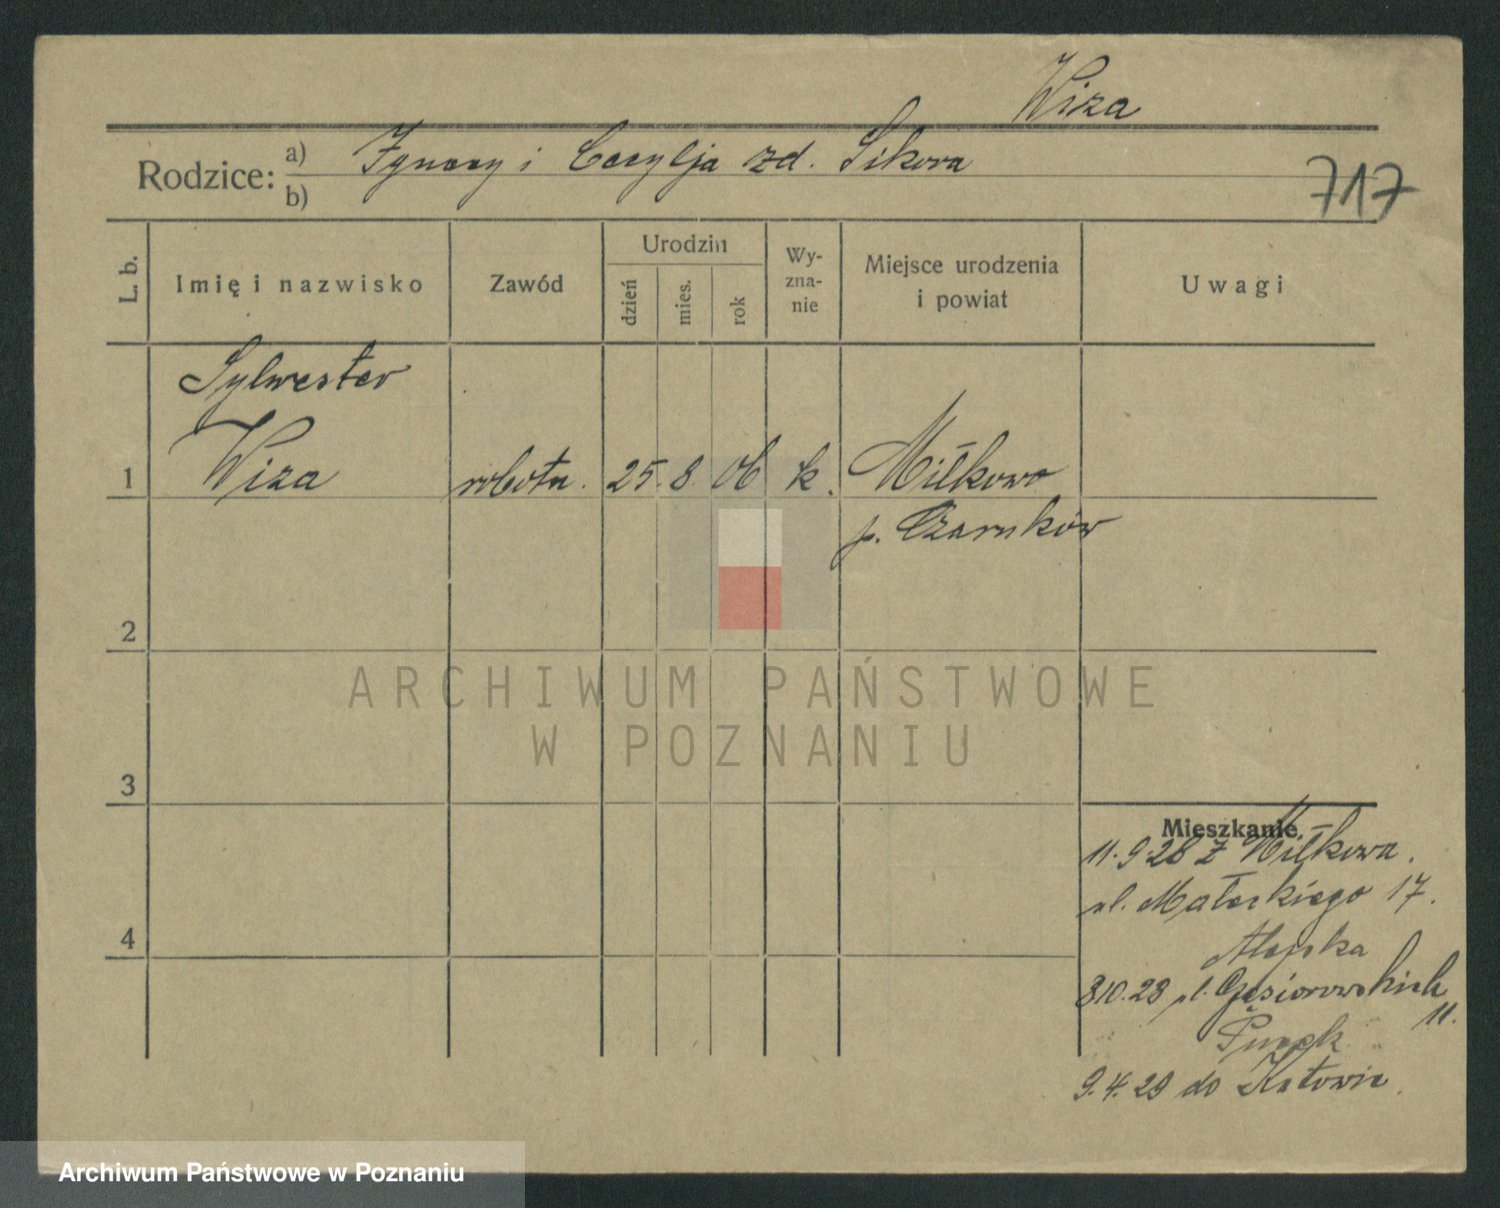 Wiza
Rodzice: a) Ignacy i Cecylja zd. Sikora
b)
717
L. b.
Imię i nazwisko
Zawód
Urodzin
dzień
mies.
rok
Wy-
zna-
nie
Miejsce urodzenia
i powiat
Uwagi
Sylwester
1 Wiza robotn. 25. 8. 06 k. Miłkowo
p. Czarnków
2
ARCHIWUM PAŃSTWOWE
W POZNANIU
3
Mieszkanie
11.9.28 z Miłkowa.
ul. Małeckiego 17.
3 10.28 ul. Gąsiorowskich
11.
9.4.29 do Katowic.
4
Archiwum Państwowe w Poznaniu